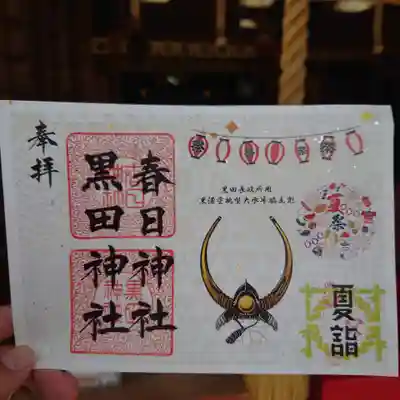 奉拝
春日神社
黒田神社
黒田長政所用
黒漆塗桃型大水牛脇立兜
夏祭
夏詣